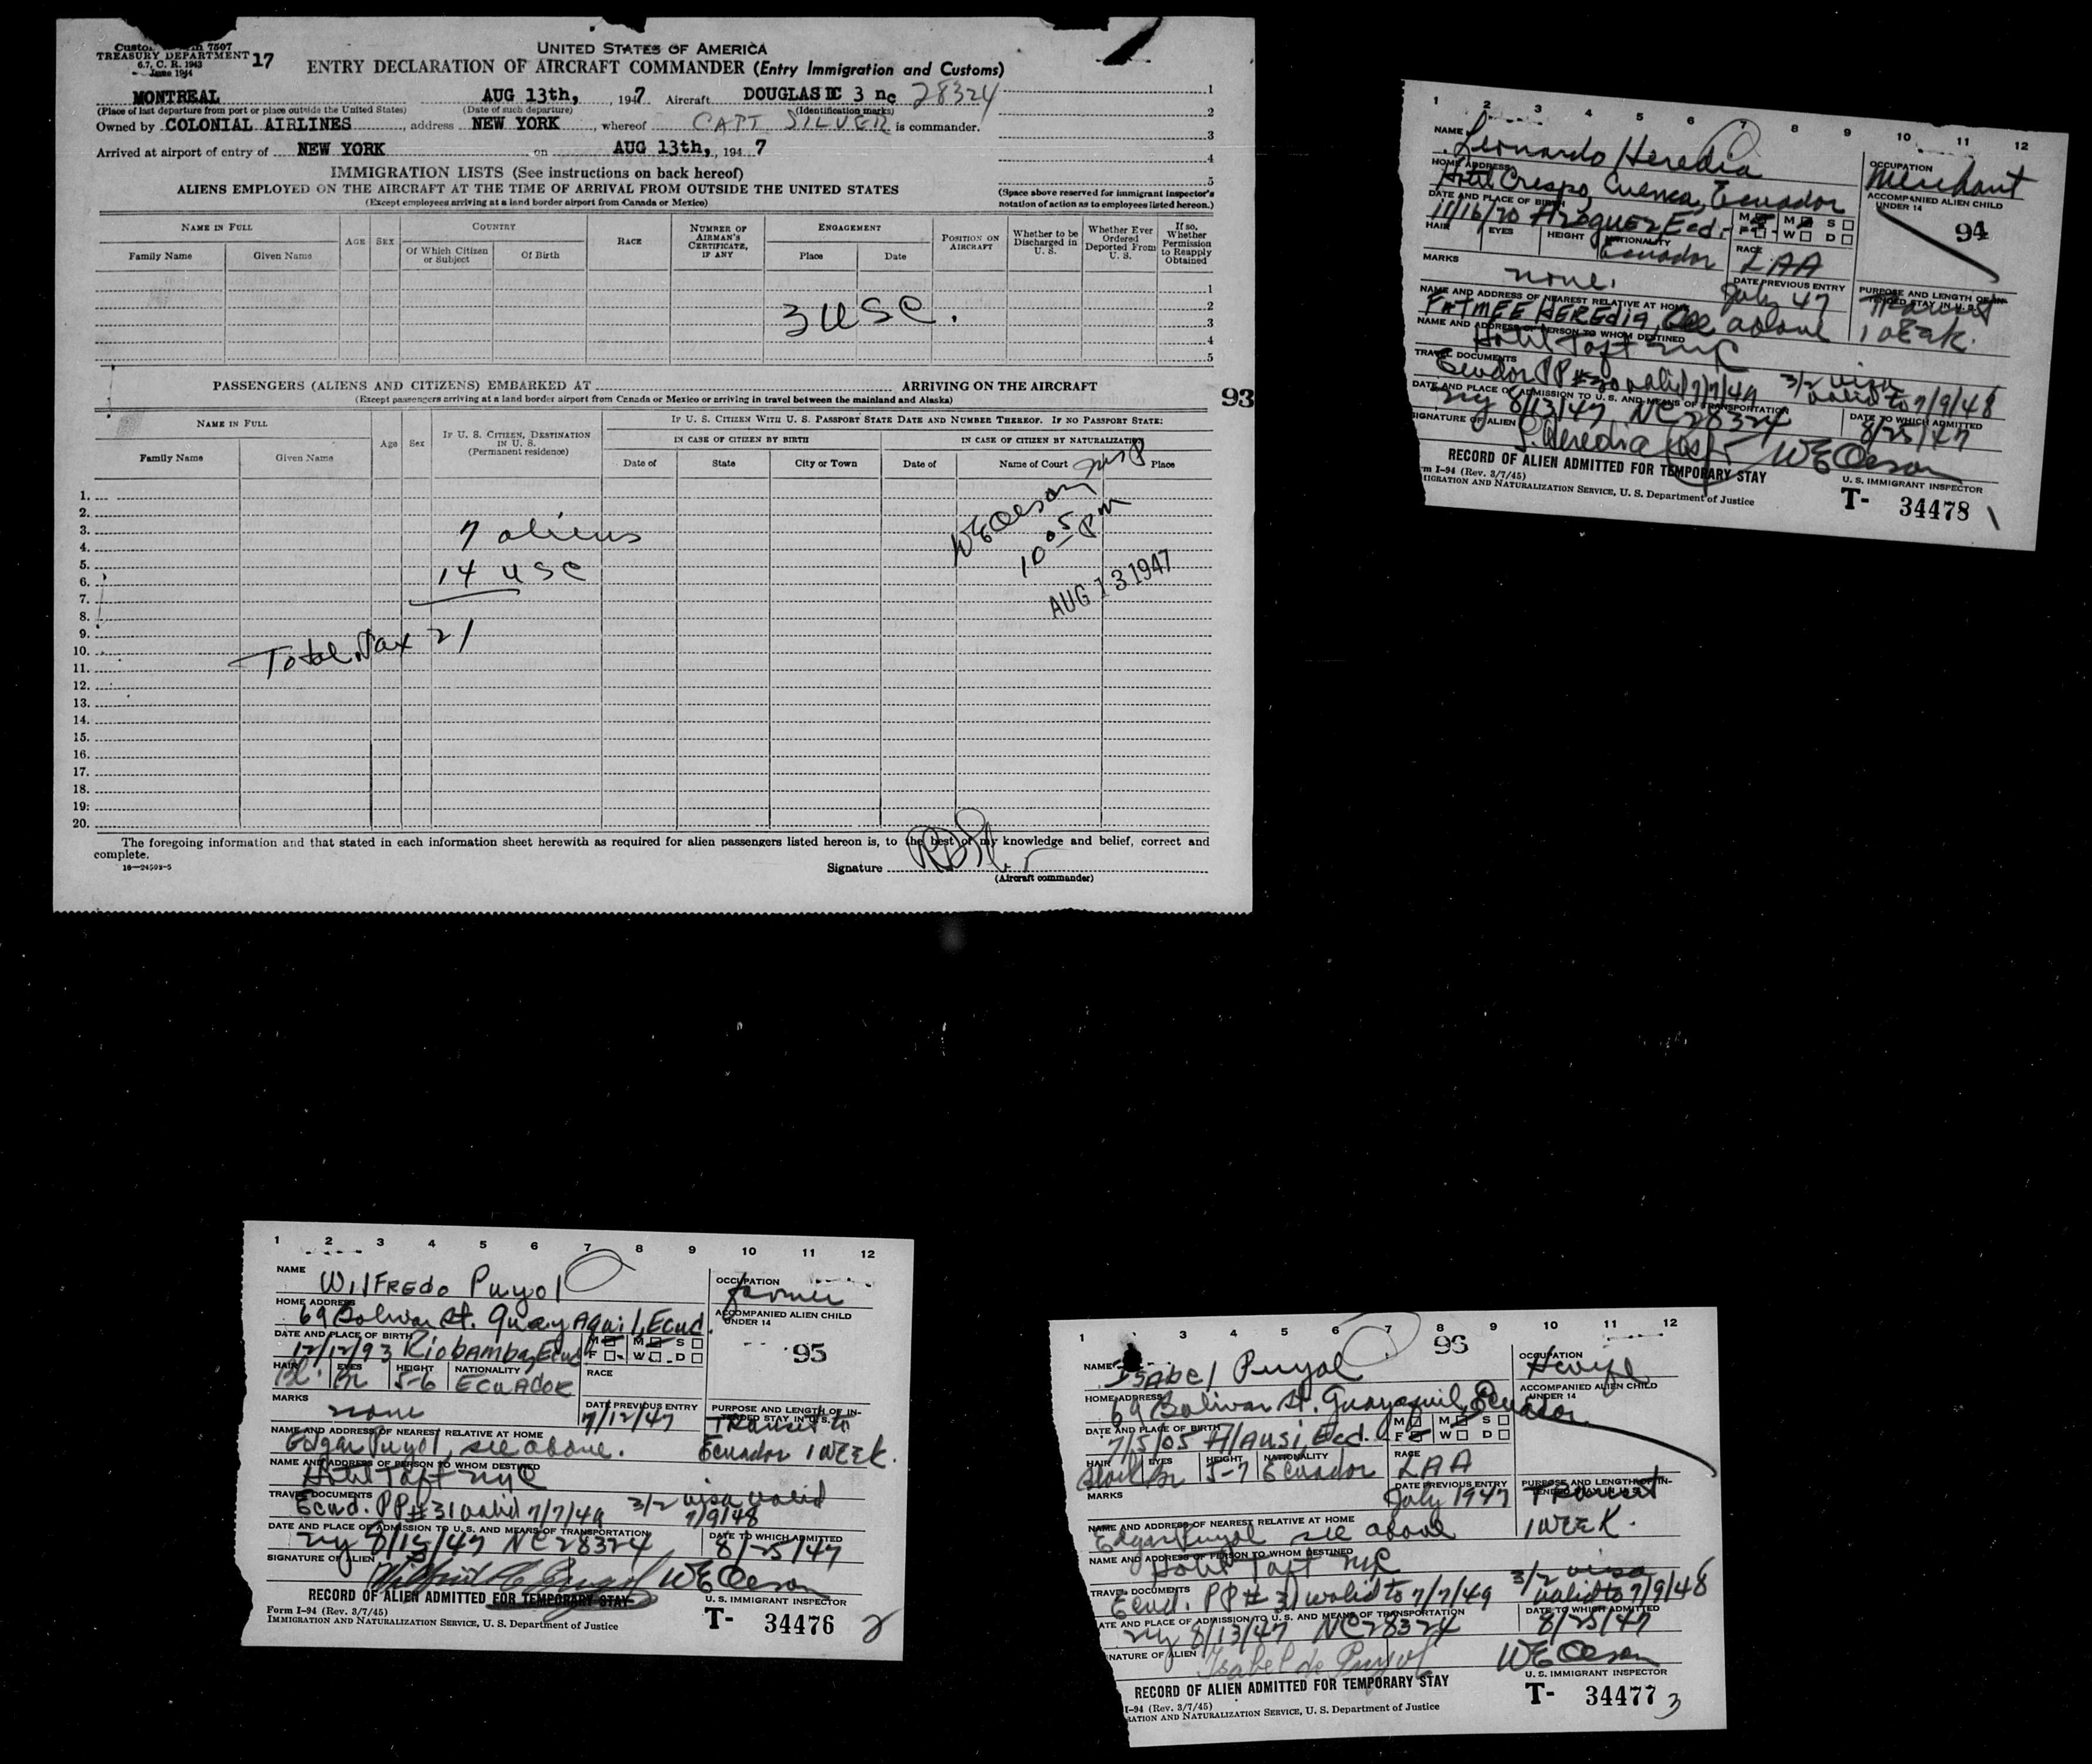 Form 7507
TREASURY DEPARTMENT 17
6.7, C. R. 1943
June 1944
UNITED STATES OF AMERICA
ENTRY DECLARATION OF AIRCRAFT COMMANDER (Entry Immigration and Customs)
MONTREAL AUG 13th, , 1947 Aircraft DOUGLAS DC 3 nc 28324
(Place of last departure from port or place outside the United States) (Date of such departure) (Identification marks)
Owned by COLONIAL AIRLINES , address NEW YORK , whereof CAPT. SILVER is commander.
Arrived at airport of entry of NEW YORK on AUG 13th, , 1947
1
2
3
4
5
(Space above reserved for immigrant inspector's notation of action as to employees listed hereon.)
IMMIGRATION LISTS (See instructions on back hereof)
ALIENS EMPLOYED ON THE AIRCRAFT AT THE TIME OF ARRIVAL FROM OUTSIDE THE UNITED STATES
(Except employees arriving at a land border airport from Canada or Mexico)
NAME IN FULL AGE SEX COUNTRY RACE NUMBER OF AIRMAN'S CERTIFICATE, IF ANY ENGAGEMENT POSITION ON AIRCRAFT Whether to be Discharged in U. S. Whether Ever Ordered Deported From U. S. If so, Whether Permission to Reapply Obtained
Family Name Given Name Of Which Citizen or Subject Of Birth Place Date
1
2
3
4
5
3 USC.
PASSENGERS (ALIENS AND CITIZENS) EMBARKED AT ARRIVING ON THE AIRCRAFT
(Except passengers arriving at a land border airport from Canada or Mexico or arriving in travel between the mainland and Alaska)
93
NAME IN FULL Age Sex IF U. S. CITIZEN, DESTINATION IN U. S. (Permanent residence) IF U. S. CITIZEN WITH U. S. PASSPORT STATE DATE AND NUMBER THEREOF. IF NO PASSPORT STATE:
IN CASE OF CITIZEN BY BIRTH IN CASE OF CITIZEN BY NATURALIZATION
Family Name Given Name Date of State City or Town Date of Name of Court Place
1.
2.
3.
4.
5.
6.
7.
8.
9.
10.
11.
12.
13.
14.
15.
16.
17.
18.
19.
20.
7 aliens
14 USC
Total Pax 21
WE Olson
10 05 PM
AUG 13 1947
The foregoing information and that stated in each information sheet herewith as required for alien passengers listed hereon is, to the best of my knowledge and belief, correct and complete.
16—24508-5
Signature
(Aircraft commander)
1 2 3 4 5 6 7 8 9 10 11 12
NAME Leonardo Heredia
OCCUPATION Merchant
HOME ADDRESS Hotel Crespo, Cuenca, Ecuador
ACCOMPANIED ALIEN CHILD UNDER 14
94
DATE AND PLACE OF BIRTH 11/16/20 Azoguez Ecd.
M F M W S D
HAIR EYES HEIGHT NATIONALITY Ecuador RACE LAA
MARKS none.
DATE PREVIOUS ENTRY July 47
PURPOSE AND LENGTH OF INTENDED STAY IN U. S. Transit 1 week.
NAME AND ADDRESS OF NEAREST RELATIVE AT HOME FATMEE HEREDIA, see above
NAME AND ADDRESS OF PERSON TO WHOM DESTINED Hotel Taft NYC
TRAVEL DOCUMENTS Ecudor PP #30 valid 7/7/49 3/2 visa valid to 7/9/48
DATE AND PLACE OF ADMISSION TO U. S. AND MEANS OF TRANSPORTATION NY 8/13/47 NC 28324
DATE TO WHICH ADMITTED 8/25/47
SIGNATURE OF ALIEN L. Heredia
WE Olson
RECORD OF ALIEN ADMITTED FOR TEMPORARY STAY
U. S. IMMIGRANT INSPECTOR
m I-94 (Rev. 3/7/45)
IGRATION AND NATURALIZATION SERVICE, U. S. Department of Justice
T- 34478 1
1 2 3 4 5 6 7 8 9 10 11 12
NAME WILFREDO Puyol
OCCUPATION farmer
HOME ADDRESS 69 Bolivar St. Guayaquil, Ecud.
ACCOMPANIED ALIEN CHILD UNDER 14
95
DATE AND PLACE OF BIRTH 12/12/93 Riobamba, Ecud
M F M W S D
HAIR Bl. EYES Br HEIGHT 5-6 NATIONALITY ECUADOR RACE
MARKS none
DATE PREVIOUS ENTRY 7/12/47
PURPOSE AND LENGTH OF INTENDED STAY IN U. S. Transit to Ecuador 1 WEEK.
NAME AND ADDRESS OF NEAREST RELATIVE AT HOME Edgar Puyol, see above.
NAME AND ADDRESS OF PERSON TO WHOM DESTINED Hotel Taft NYC
TRAVEL DOCUMENTS Ecud. PP# 31 valid 7/7/49 3/2 visa valid 7/9/48
DATE AND PLACE OF ADMISSION TO U. S. AND MEANS OF TRANSPORTATION NY 8/13/47 NC 28324
DATE TO WHICH ADMITTED 8/25/47
SIGNATURE OF ALIEN
WE Olson
RECORD OF ALIEN ADMITTED FOR TEMPORARY STAY
U. S. IMMIGRANT INSPECTOR
Form I-94 (Rev. 3/7/45)
IMMIGRATION AND NATURALIZATION SERVICE, U. S. Department of Justice
T- 34476 2
1 3 4 5 6 7 8 9 10 11 12
96
NAME Isabel Puyol
OCCUPATION Hwife
HOME ADDRESS 69 Bolivar St. Guayaquil, Ecuador.
ACCOMPANIED ALIEN CHILD UNDER 14
DATE AND PLACE OF BIRTH 7/5/05 Alausi, Ecd.
M F M W S D
HAIR Black EYES Br HEIGHT 5-7 NATIONALITY Ecuador RACE LAA
MARKS
DATE PREVIOUS ENTRY July 1947
PURPOSE AND LENGTH OF INTENDED STAY IN U. S. Transit 1 WEEK.
NAME AND ADDRESS OF NEAREST RELATIVE AT HOME Edgar Puyol see above
NAME AND ADDRESS OF PERSON TO WHOM DESTINED Hotel Taft NYC
TRAVEL DOCUMENTS Ecud. PP# 31 valid to 7/7/49 3/2 visa valid to 7/9/48
ATE AND PLACE OF ADMISSION TO U. S. AND MEANS OF TRANSPORTATION NY 8/13/47 NC28324
DATE TO WHICH ADMITTED 8/25/47
NATURE OF ALIEN Isabel de Puyol
WE Olson
RECORD OF ALIEN ADMITTED FOR TEMPORARY STAY
U. S. IMMIGRANT INSPECTOR
I-94 (Rev. 3/7/45)
RATION AND NATURALIZATION SERVICE, U. S. Department of Justice
T- 34477 3